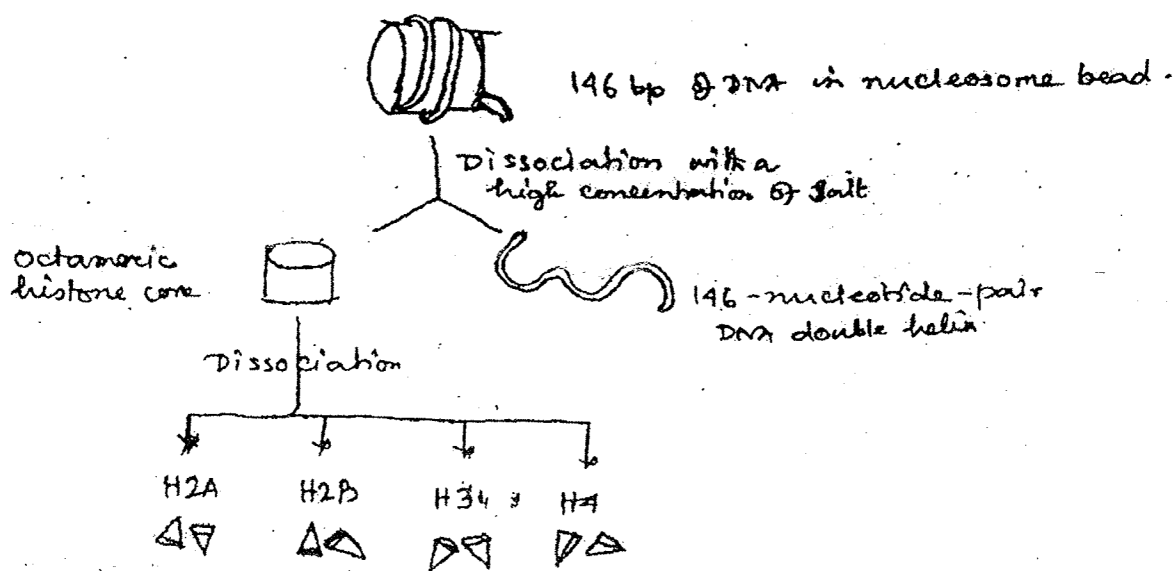 146 bp of DNA in nucleosome bead.
Dissociation with a
high concentration of salt
Octameric
histone core
146-nucleotide-pair
DNA double helix
Dissociation
H2A H2B H3 H4